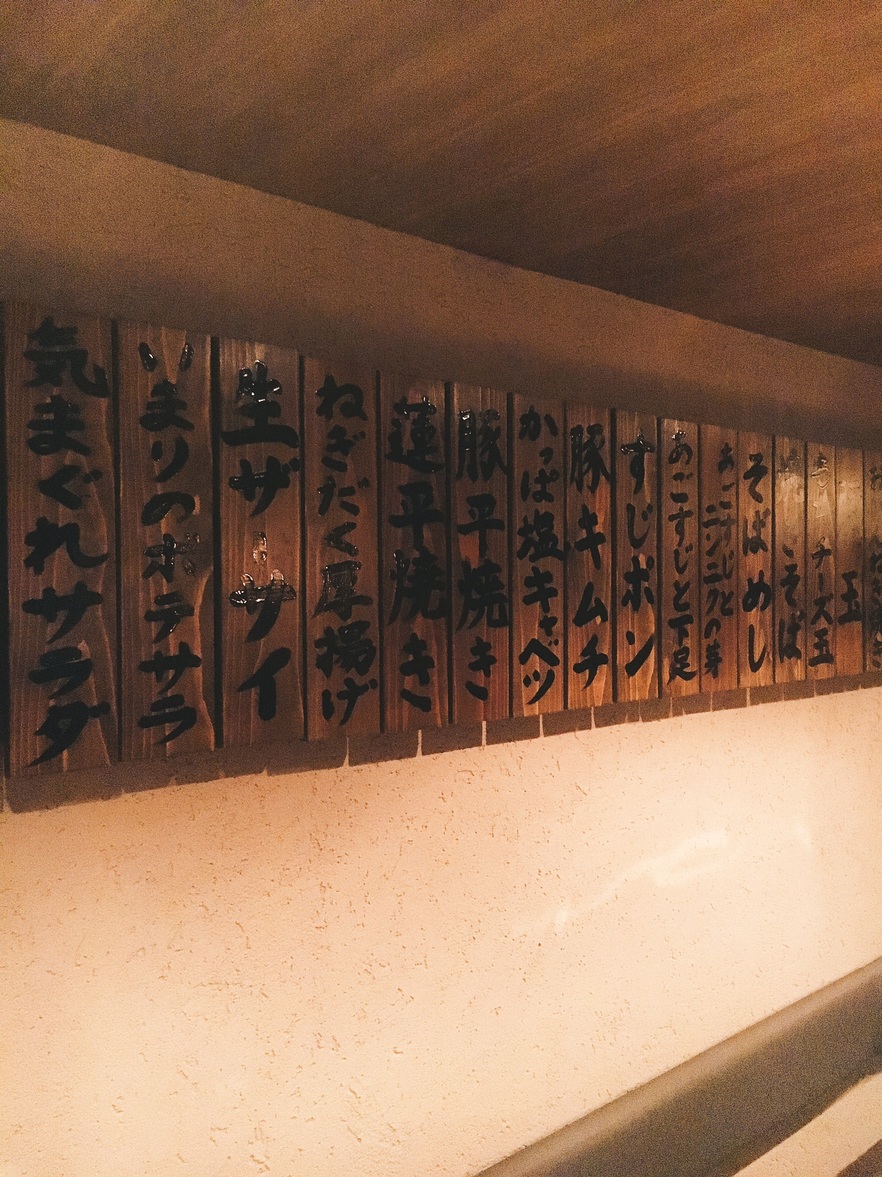 玉
チーズ玉
そば
そばめし
あごすじとニンニクの芽
あごすじと下足
すじポン
豚キムチ
かっぱ塩キャベツ
豚平焼き
蓮平焼き
ねぎだく厚揚げ
生ザーサイ
いまりのポテサラ
気まぐれサラダ